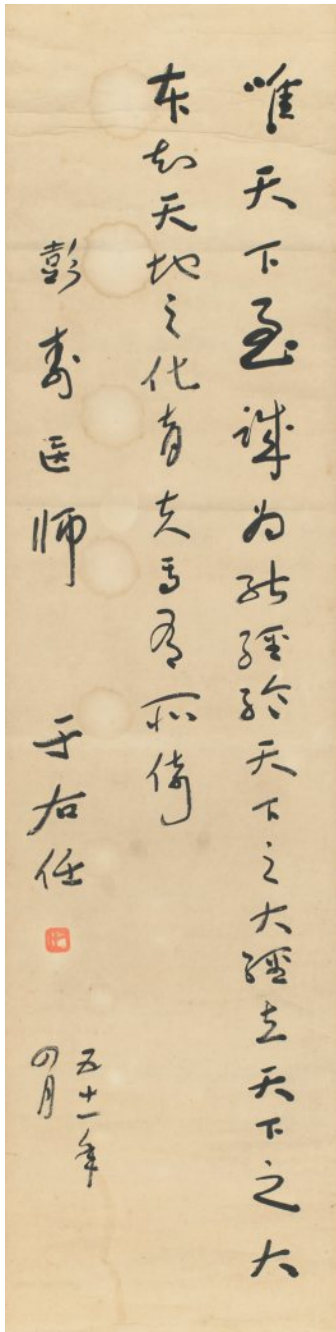 唯天下至诚为能經綸天下之大經立天下之大
本知天地之化育夫焉有所倚
彭壽医師 于右任
五十一年
四月